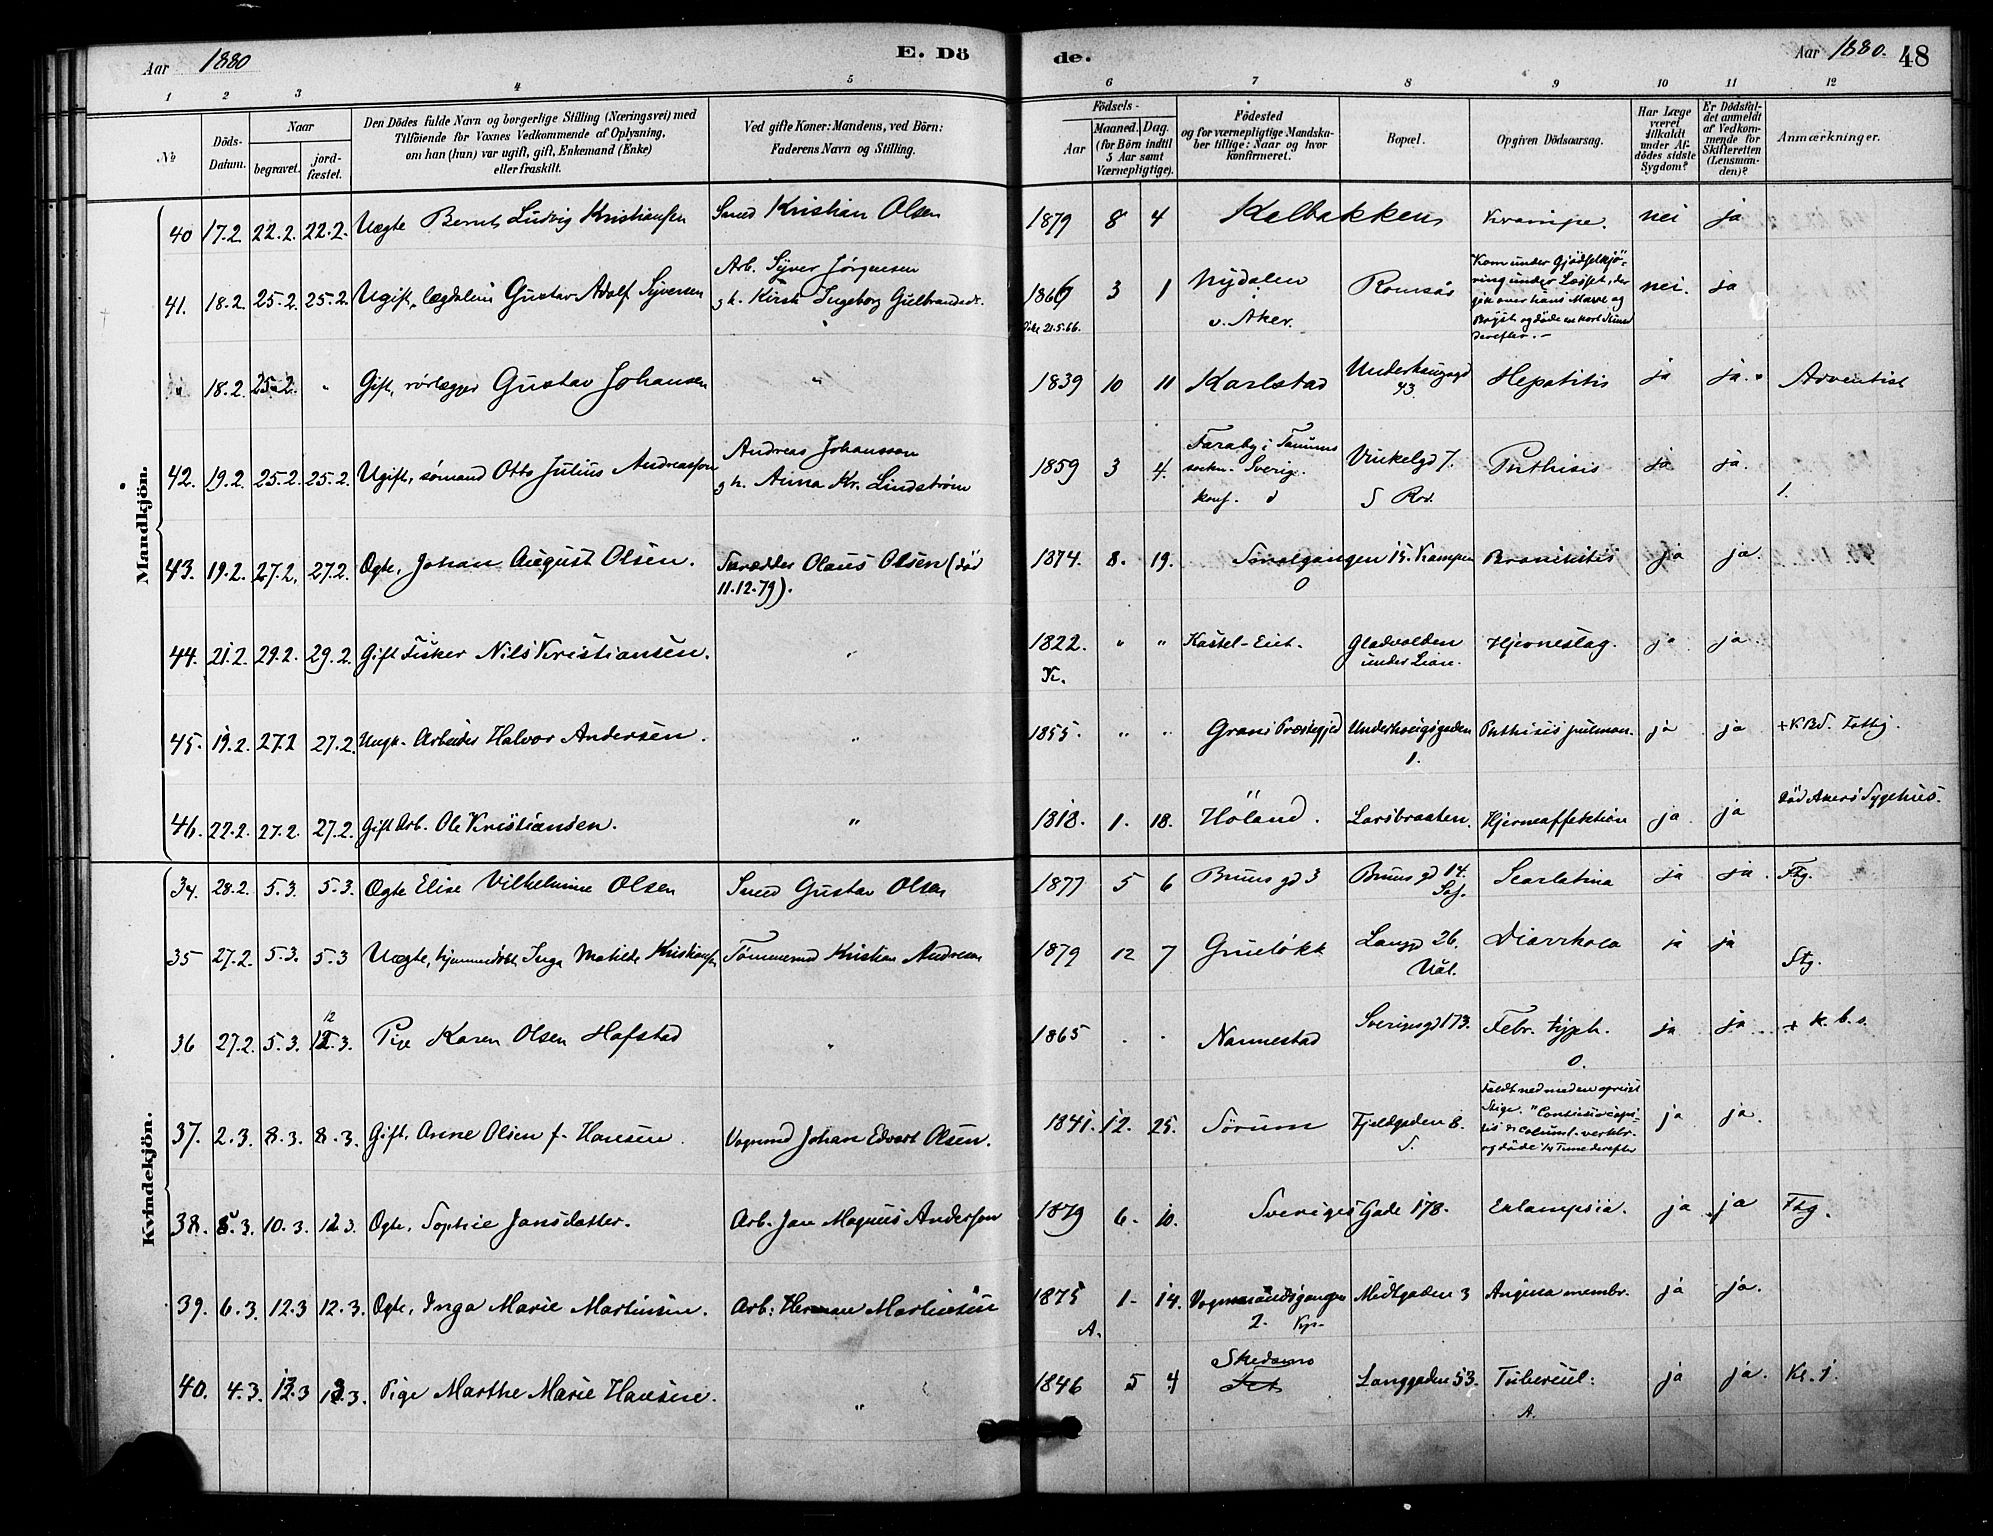 Aar 1880
E. Dö
de.
Aar 1880. 48
1 2 3 4 5 6 7 8 9 10 11 12
No
Döds-Datum.
Naar
begravet.
jord-fæstet.
Den Dödes fulde Navn og borgerlige Stilling (Næringsvei) med
Tilföiende for Voxnes Vedkommende af Oplysning,
om han (hun) var ugift, gift, Enkemand (Enke)
eller fraskilt.
Ved gifte Koner: Mandens, ved Börn:
Faderens Navn og Stilling.
Födsels-
Aar
Maaned. Dag.
(for Börn indtil
5 Aar samt
Værnepligtige).
Födested
og for værnepligtige Mandska-
ber tillige: Naar og hvor
konfirmeret.
Bopæl.
Opgiven Dödsaarsag.
Har Læge
været
tilkaldt
under Af-
dödes sidste
Sygdom?
Er Dödsfal-
det anmeldt
af Vedkom-
mende for
Skifteretten
(Lensman-
den)?
Anmærkninger.
Mandkjön.
40 17.2. 22.2. 22.2. Uægte Bernt Ludvig Kristiansen Smed Kristian Olsen 1879 8 4 Kalbakken Krampe. nei ja
41. 18.2. 25.2. 25.2. Ugift, lægdslem Gustav Adolf Syversen Arb. Syver Jørgensen
g h. Kirst. Ingeborg Gulbrandsdr. 1866 3 1 Nydalen
v. Aker. Romsås Kom under Gjødselkjø-
ring under Læsset, der
gik over hans Mave og
Bryst og døde en kort Stund
derefter. - nei. ja
21.5.66.
" 18.2. 25.2. " Gift, rørlægger Gustav Johansen " 1839 10 11 Karlstad Underhaugsgd
43 Hepatitis ja ja. Adventist
42. 19.2. 25.2. 25.2. Ugift, sømand Otto Julius Andreasson Andreas Johansson
g h. Anna Kr. Lindstrøm 1859 3 4. Faraby i Tanums
sockn. Sverig.
konf. Vinkelgd 7. Phthisis ja ja.
1.
43. 19.2. 27.2, 27.2. Ægte, Johan August Olsen. Skrædder Olaus Olsen (død
11.12.79). 1874. 8. 19. Smalgangen 15. Kampen Bronkitis ja ja.
44. 21.2. 29.2. 29.2. Gift Fisker Nils Kristiansen. " 1822. " " Kastel-Eiet. Gladvolden
under Lian. Hjerneslag. ja ja
45. 19.2. 27.2 27.2. Ungk. Arbeider Halvor Andersen. " 1855. " " Grans Præstegjeld Underhaugsgaden
1. Phthisis pulmon. ja ja
46. 22.2. 27.2. 27.2. Gift Arb. Ole Kristiansen. " 1818. 1. 18. Høland. Larsbraaten. Hjerneaffektion ja ja død Akers Sygehus.
Kvindekjön.
34. 28.2. 5.3. 5.3. Ægte Elise Vilhelmine Olsen Smed Gustav Olsen 1877 5 6 Bruns gd 3 Bruns gd 14. Scarlatina ja ja. Ftg.
35 27.2. 5.3. 5.3 Uægte, hjemmedøbt Inga Matilde Kristiansen Tømmermd Kristian Andresen 1879 12 7 Grueløkk Langgd 26.
Vål. Diarrhoea ja ja
36 27.2. 5.3. 12.3. Pige Karen Olsen Hafstad " 1865 . . Nannestad Sverigsgd 173. Febr. typh. ja ja + k. b. s.
37. 2.3. 8.3. 8.3. Gift, Anne Olsen f. Hansen. Vognmd Johan Edvart Olsen. 1841. 12. 25. Sørum Fjeldgaden 8.
S. Faldt ned med en opreist
Stige. "Contusio capi-
tis & column. vertebr.
og døde ¼ Time derefter ja ja.
38. 5.3. 10.3. 12.3. Ægte, Sophie Jansdatter. Arb. Jan Magnus Andersson 1879 6. 10. Sveriges Gade 178. Eclampsia. ja ja Ftg.
39. 6.3. 12.3 12.3. Ægte, Inga Marie Martinsen. Arb: Herman Martinsen 1875 1. 14. Vognmandsgangen
2. Kp. Midtgaden 3 Angina membr. ja ja.
A.
40. 4.3. 13.3 13.3. Pige Marthe Marie Hansen. " 1846 5 4 Skedsmo
Fet Langgaden 53. Tubercul:
A. ja ja. Kr. j.